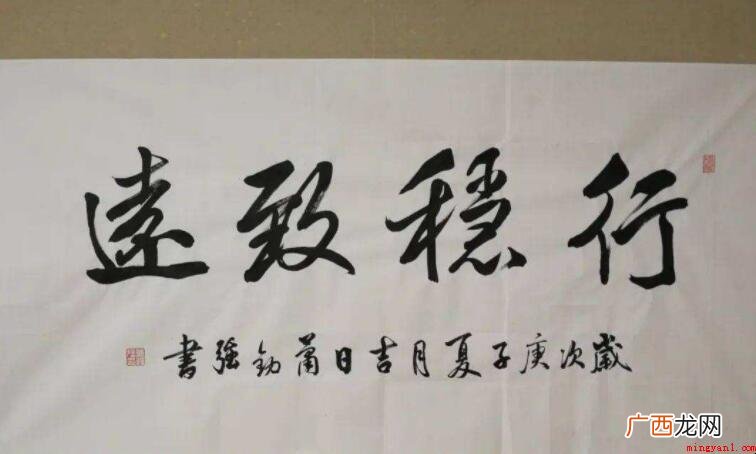 行穩致遠
歲次庚子夏月吉日蕭劍強書
广西龙网
mingyan1.com